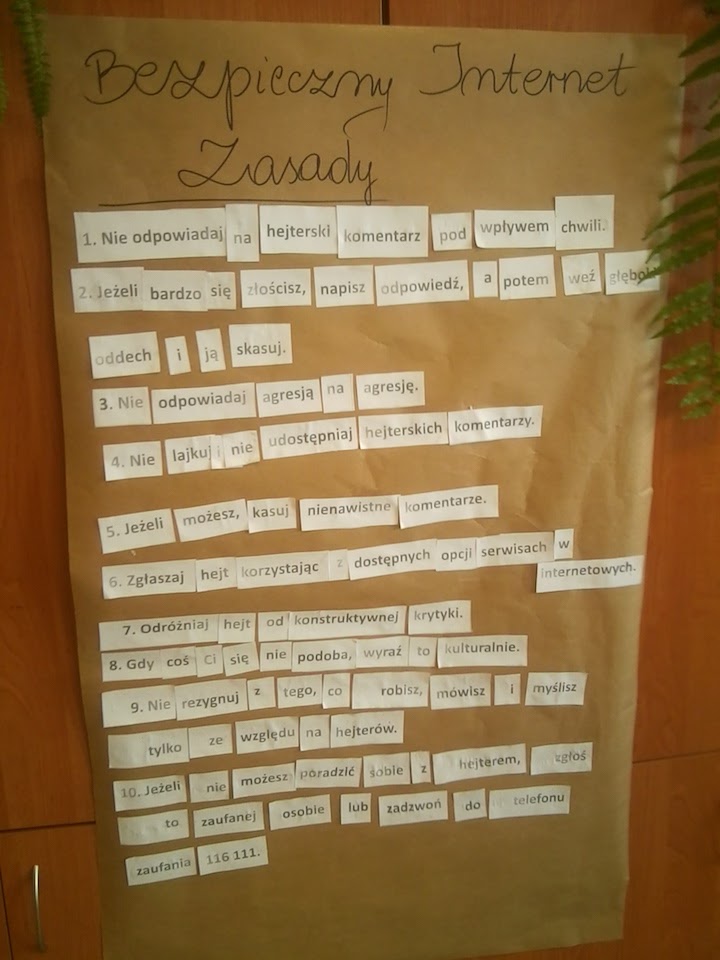 Bezpieczny Internet
Zasady
1. Nie odpowiadaj na hejterski komentarz pod wpływem chwili.
2. Jeżeli bardzo się złościsz, napisz odpowiedź, a potem weź głębok
oddech i ją skasuj.
3. Nie odpowiadaj agresją na agresję.
4. Nie lajkuj i nie udostępniaj hejterskich komentarzy.
5. Jeżeli możesz, kasuj nienawistne komentarze.
6. Zgłaszaj hejt korzystając z dostępnych opcji serwisach w
internetowych.
7. Odróżniaj hejt od konstruktywnej krytyki.
8. Gdy coś Ci się nie podoba, wyraź to kulturalnie.
9. Nie rezygnuj z tego, co robisz, mówisz i myślisz
tylko ze względu na hejterów.
10. Jeżeli nie możesz poradzić sobie z hejterem, zgłoś
to zaufanej osobie lub zadzwoń do telefonu
zaufania 116 111.